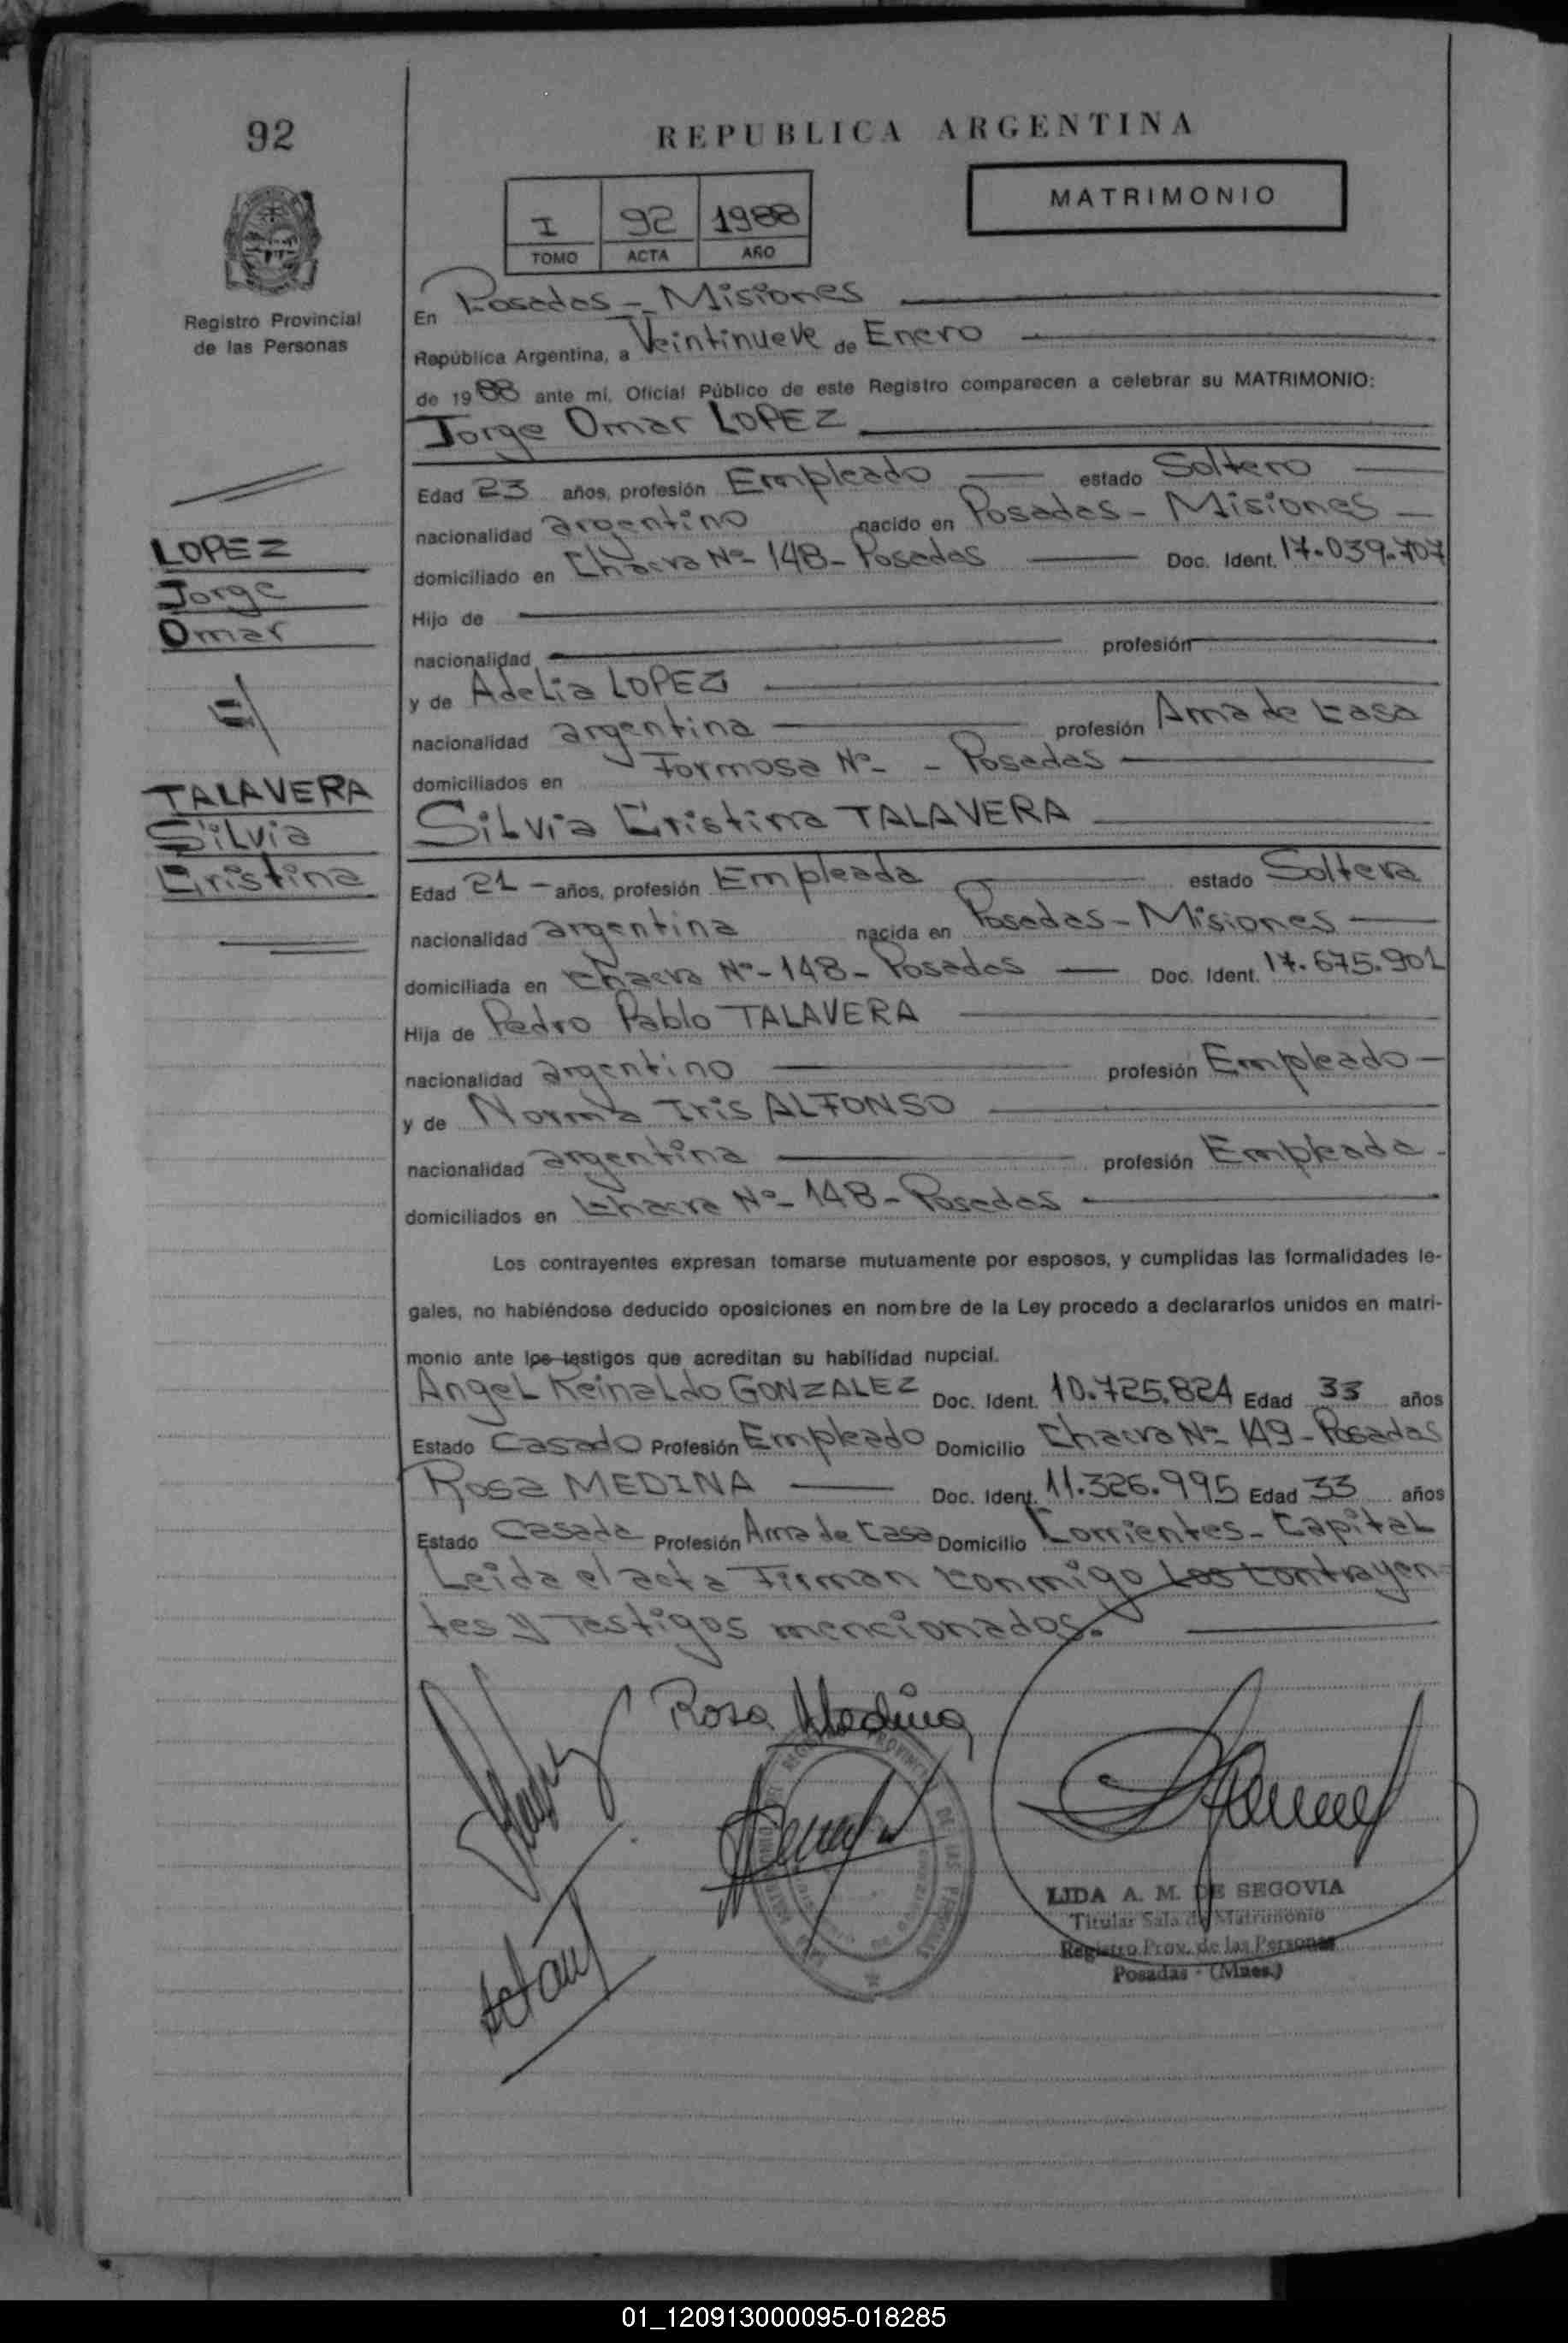 92
REPUBLICA ARGENTINA
MATRIMONIO
I 92 1988
TOMO ACTA AÑO
Registro Provincial
de las Personas
En Posadas - Misiones
República Argentina, a Veintinueve de Enero
de 1988 ante mí, Oficial Público de este Registro comparecen a celebrar su MATRIMONIO:
Jorge Omar LOPEZ
Edad 23 años, profesión Empleado estado Soltero
nacionalidad argentino nacido en Posadas - Misiones
domiciliado en Chacra Nº 148 - Posadas Doc. Ident. 17.039.707
Hijo de
nacionalidad profesión
y de Adelia LOPEZ
nacionalidad argentina profesión Ama de Casa
domiciliados en Formosa Nº - Posadas
Silvia Cristina TALAVERA
Edad 21 - años, profesión Empleada estado Soltera
nacionalidad argentina nacida en Posadas - Misiones
domiciliada en Chacra Nº - 148 - Posadas Doc. Ident. 17.675.901
Hija de Pedro Pablo TALAVERA
nacionalidad argentino profesión Empleado
y de Norma Iris ALFONSO
nacionalidad argentina profesión Empleada
domiciliados en Chacra Nº - 148 - Posadas
Los contrayentes expresan tomarse mutuamente por esposos, y cumplidas las formalidades le-
gales, no habiéndose deducido oposiciones en nombre de la Ley procedo a declararlos unidos en matri-
monio ante los testigos que acreditan su habilidad nupcial.
Angel Reinaldo GONZALEZ Doc. Ident. 10.725.824 Edad 33 años
Estado Casado Profesión Empleado Domicilio Chacra Nº 149 - Posadas
Rosa MEDINA Doc. Ident. 11.326.995 Edad 33 años
Estado Casada Profesión Ama de Casa Domicilio Corrientes - Capital
Leida el acta Firman conmigo los contrayen
tes y Testigos mencionados.
LOPEZ
Jorge
Omar
TALAVERA
Silvia
Cristina
Rosa Medina
LIDA A. M. DE SEGOVIA
Titular Sala de Matrimonio
Registro Prov. de las Personas
Posadas - (Mnes.)
01_120913000095-018285